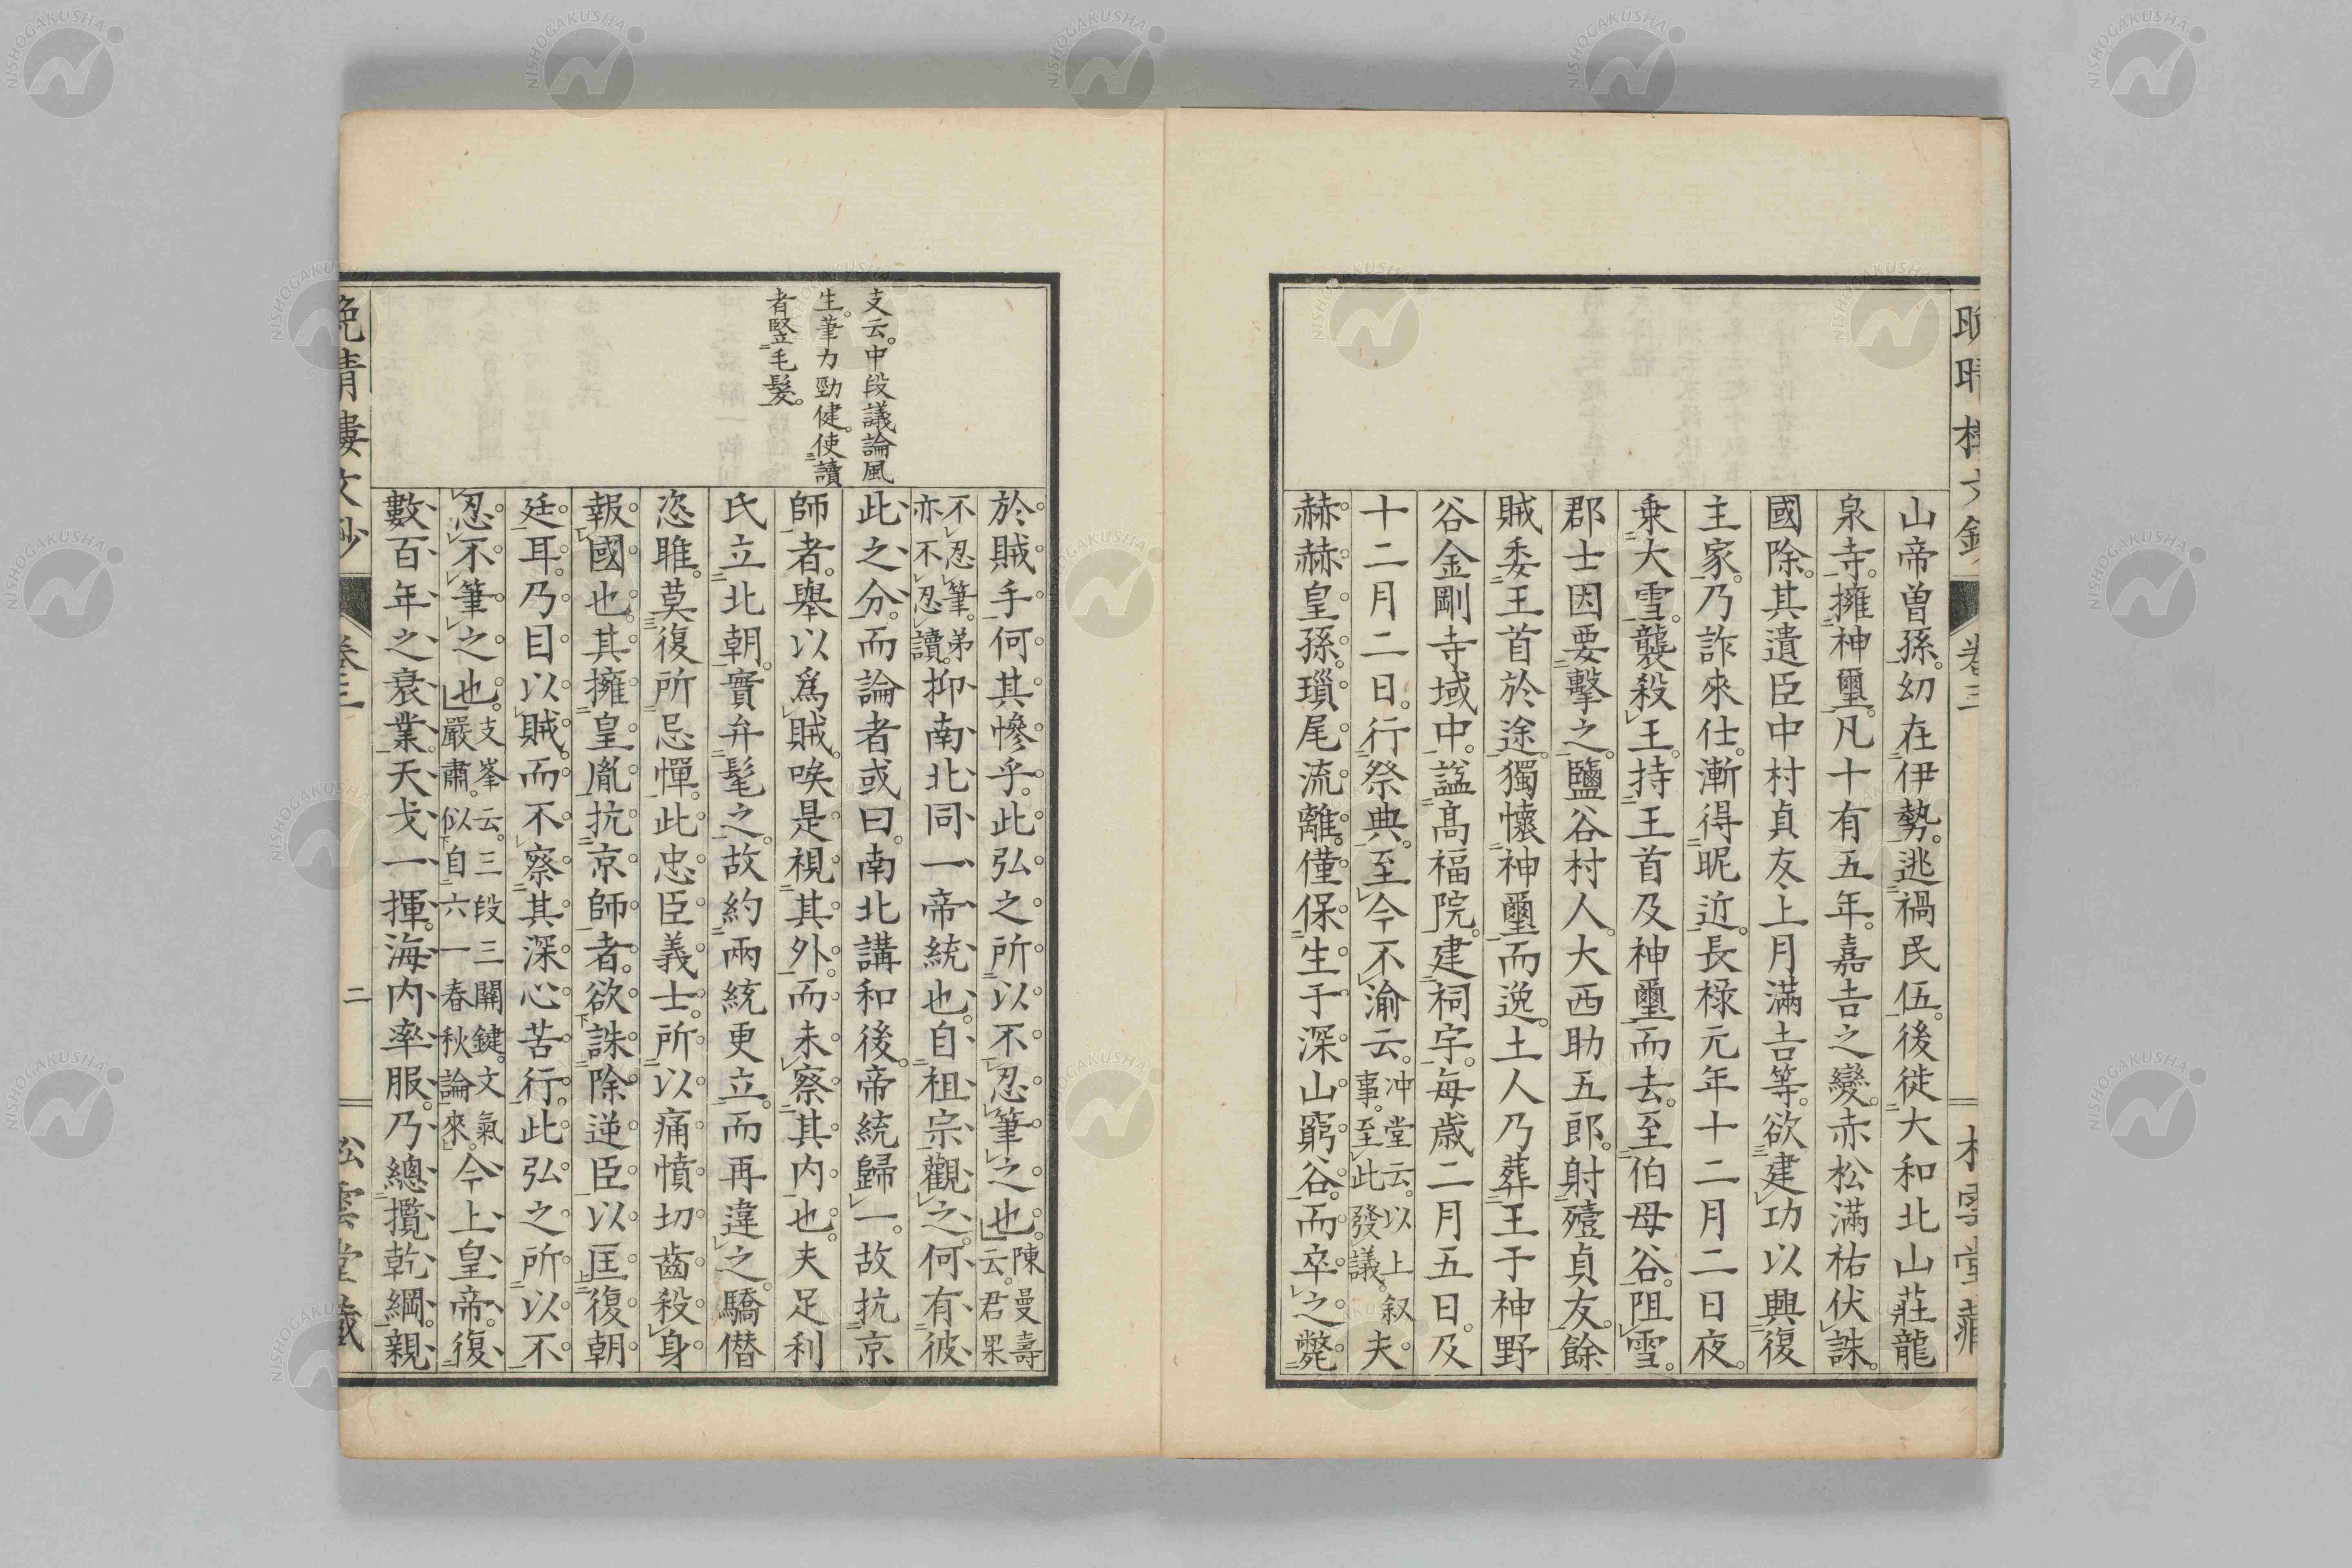 山帝曽孫。幼在伊勢。逃禍民伍。後徙大和北山莊龍
泉寺。擁神璽。凡十有五年。嘉吉之變。赤松滿祐伏誅。
國除。其遺臣中村貞友上月滿吉等。欲建功以興復
主家。乃詐來仕。漸得昵近。長祿元年十二月二日夜。
乘大雪。襲殺王。持王首及神璽而去。至伯母谷。阻雪。
郡士因要擊之。鹽谷村人。大西助五郎。射殪貞友。餘
賊委王首於途。獨懷神璽而逸。土人乃葬王于神野
谷金剛寺域中。諡高福院。建祠宇。每歲二月五日。及
十二月二日。行祭典。至今不渝云。冲堂云。以上叙事。至此發議。夫
赫赫皇孫。瑣尾流離。僅保生于深山窮谷。而卒之斃
於賊手。何其慘乎。此弘之所以不忍筆之也。陳曼壽云。君果
不忍筆。弟亦不忍讀。抑南北同一帝統也。自祖宗觀之。何有彼
此之分。而論者或曰。南北講和後。帝統歸一。故抗京
師者。舉以爲賊。唉是視其外。而未察其内也。夫足利
氏立北朝。實弁髦之。故約兩統更立。而再違之。驕僭
恣睢。莫復所忌憚。此忠臣義士。所以痛憤切齒殺身
報國也。其擁皇胤抗京師者。欲誅除逆臣。以匡復朝
廷耳。乃目以賊。而不察其深心苦行。此弘之所以不
忍不筆之也。支峯云。三段三關鍵。文氣嚴肅。似自六一春秋論來。今上皇帝。復
數百年之衰業。天戈一揮。海内率服。乃總攬乾綱。親
支云。中段議論風
生。筆力勁健。使讀
者竪毛髮。
晩晴樓文鈔
卷三
二
松雲堂藏